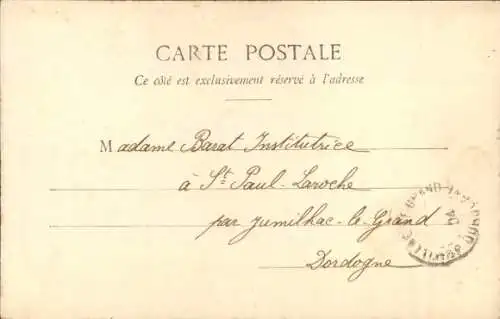 CARTE POSTALE
Ce côté est exclusivement réservé à l'adresse
Madame Barat Institutrice
à St Paul-Laroche
par Jumilhac-le-Grand
Dordogne